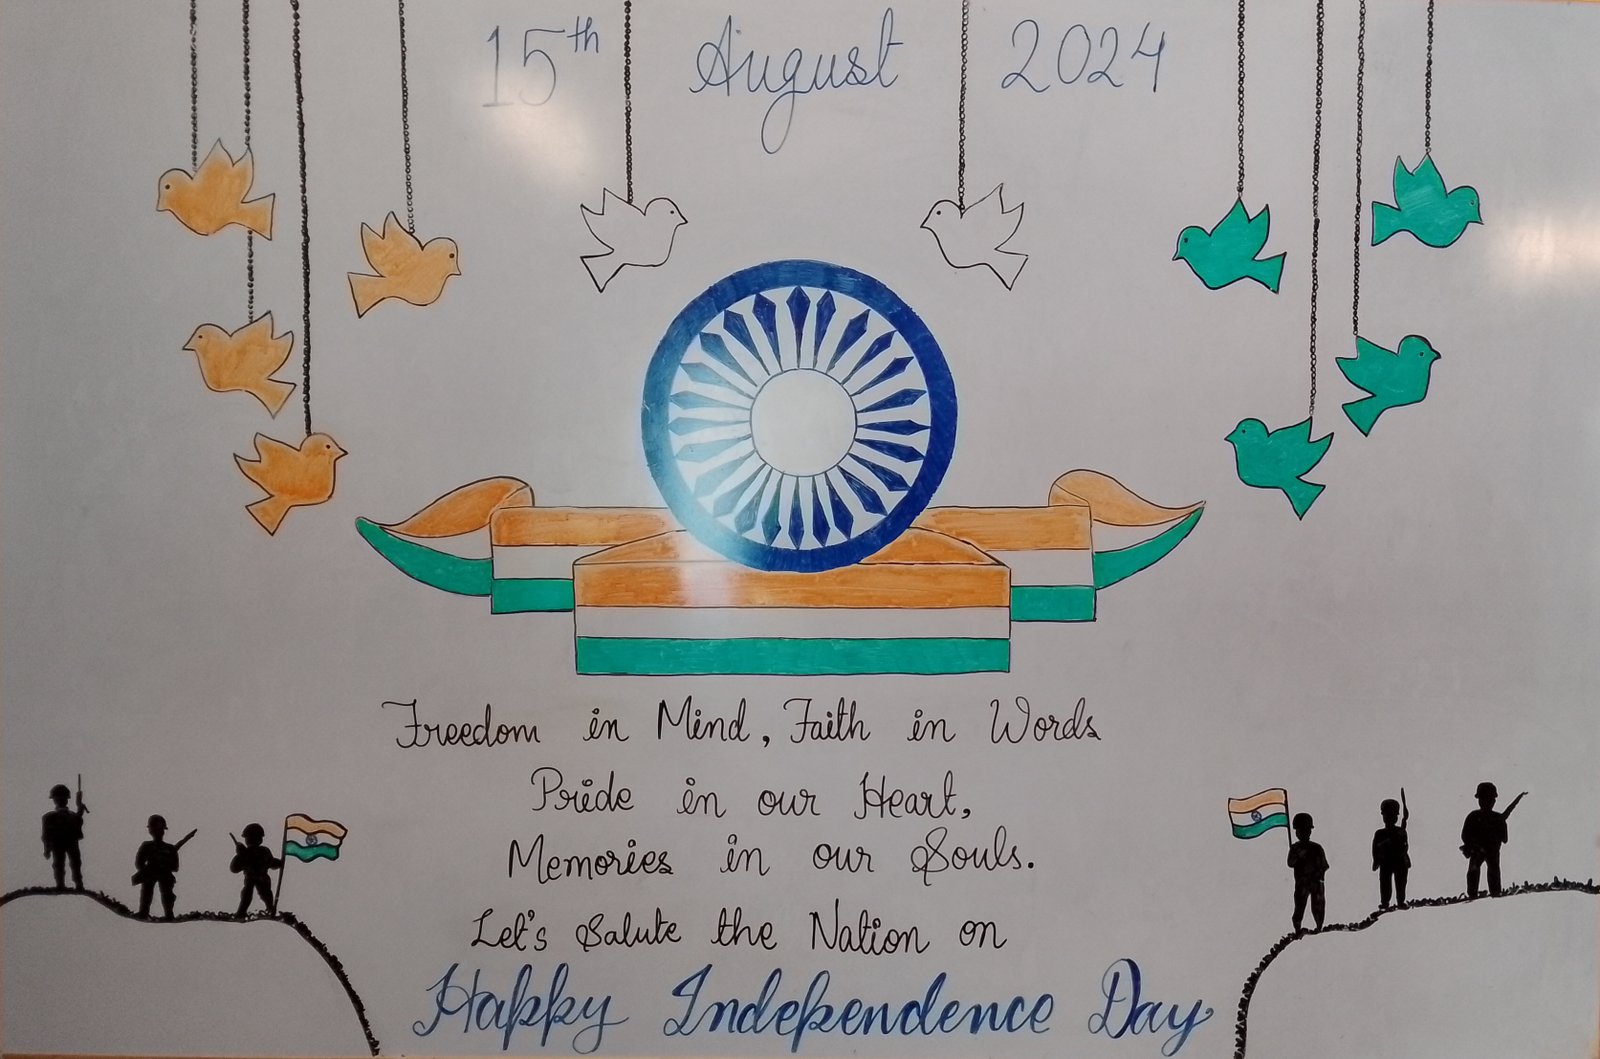 15th August 2024
Freedom in Mind, Faith in Words
Pride in our Heart,
Memories in our Souls.
Let's Salute the Nation on
Happy Independence Day